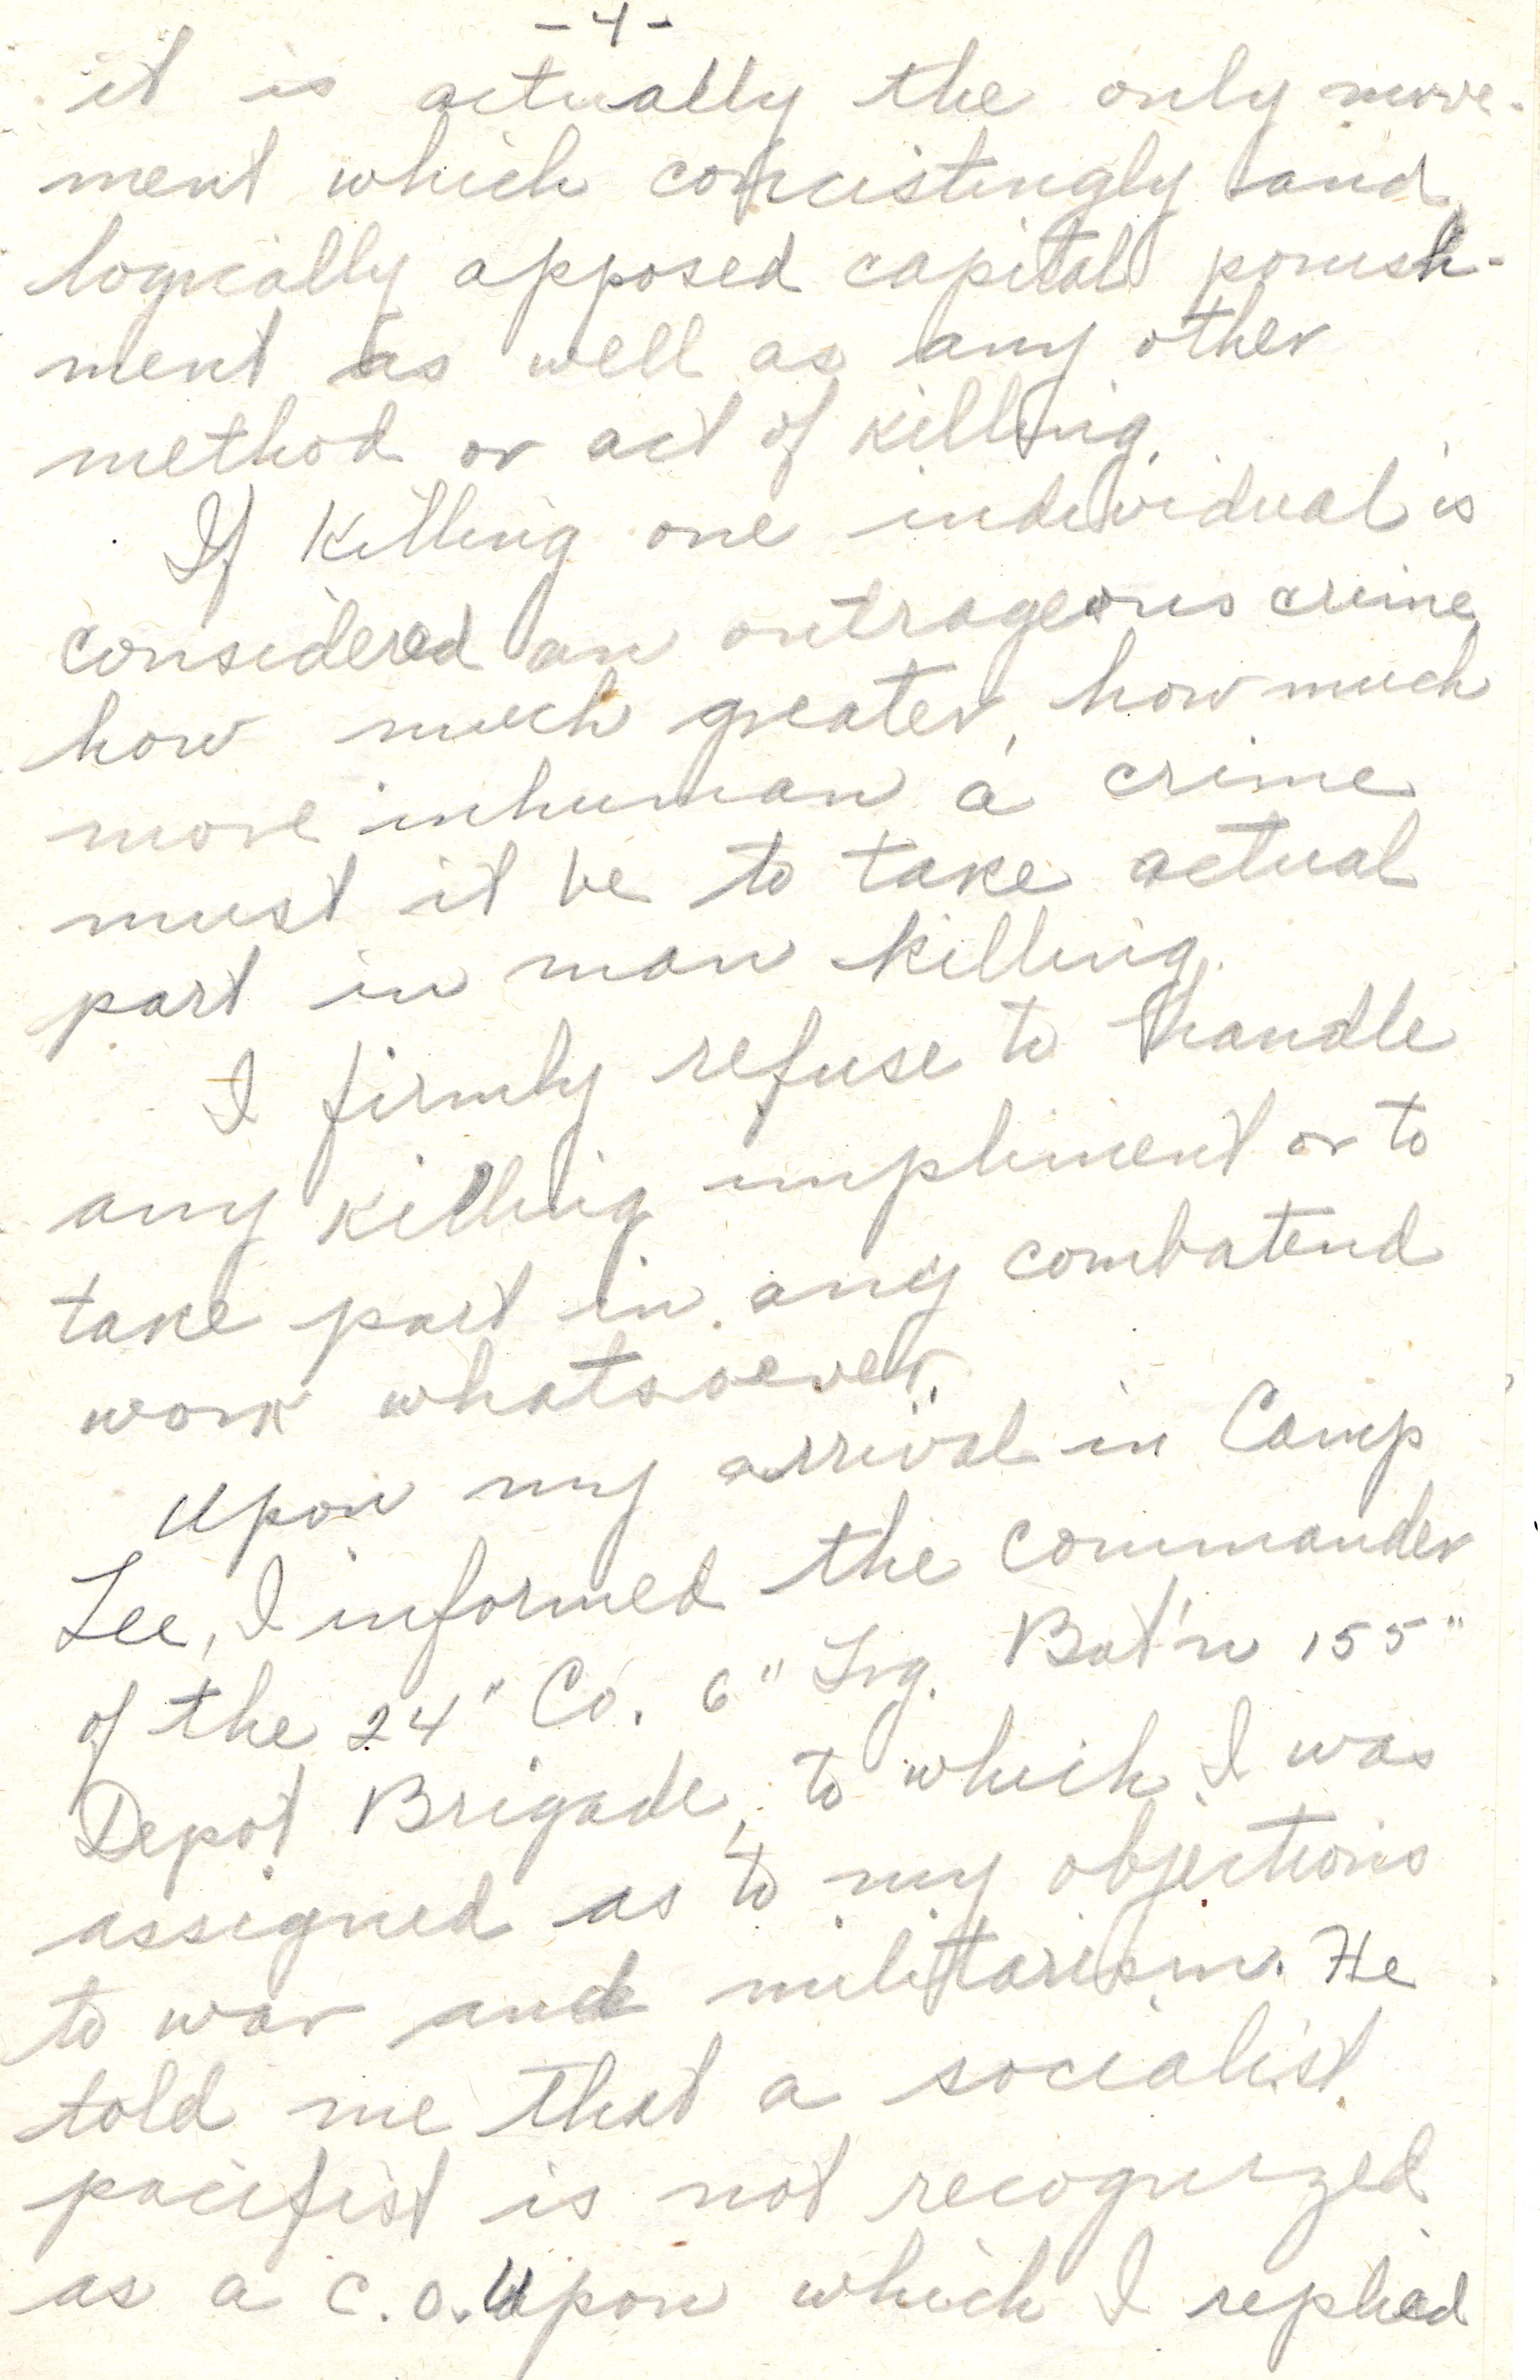 -4-
it is actually the only move-
ment which concistingly and
logically opposed capital punish-
ment as well as any other
method or act of killing.
If killing one individual is
considered an outrageous crime,
how much greater, how much
more inhuman a crime
must it be to take actual
part in man killing.
I firmly refuse to handle
any killing impliment or to
take part in any combatend
work whatsoever.
Upon my arrival in Camp
Lee, I informed the commander
of the 24" Co. 6" Trg. Bat'n 155"
Depot Brigade, to which I was
assigned as to my objections
to war and militarism. He
told me that a socialist
pacifist is not recognized
as a C.O. Upon which I replied